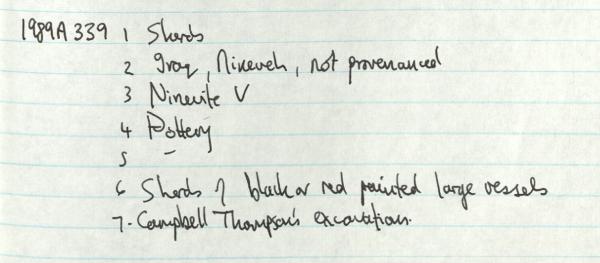 1989A339 1 Sherds
2 Iraq, Nineveh, not provenanced
3 Ninevite V
4 Pottery
5 –
6 Sherds of black or red painted large vessels
7. Campbell Thompson's excavation.